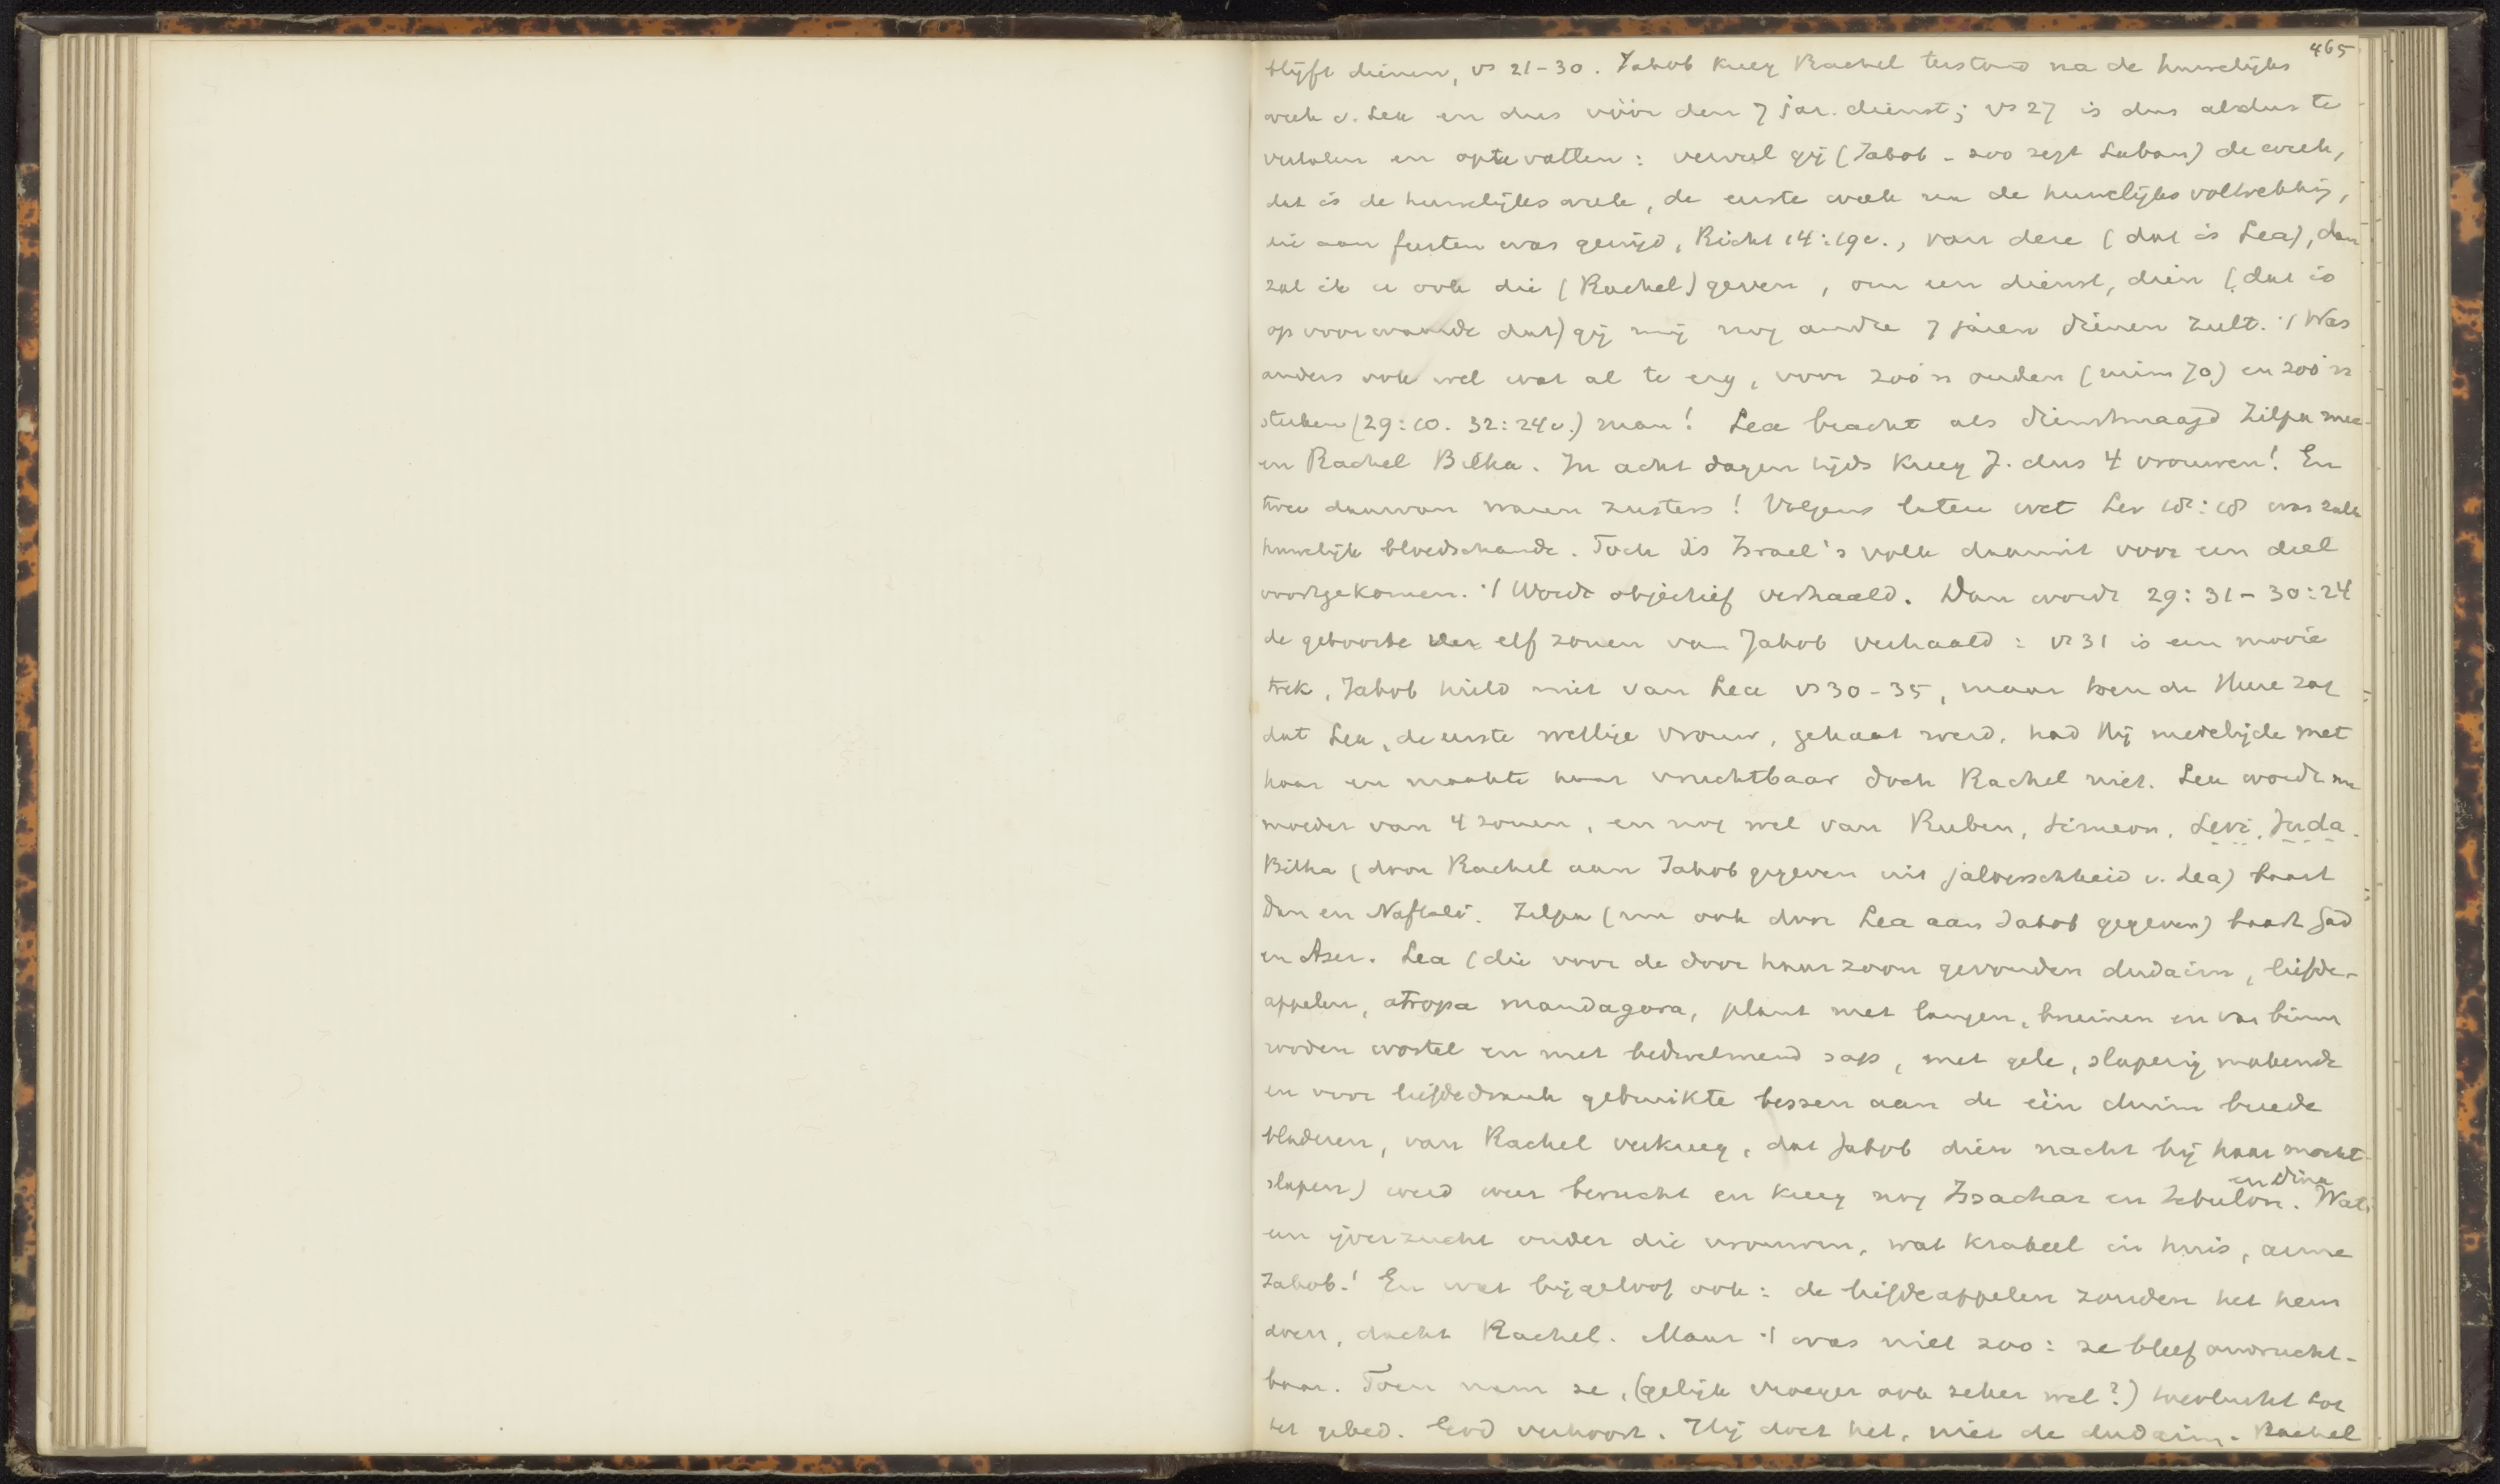 465
blijft dienen, vs 21-30. Jakob kreeg Rachel terstond na de huwelijks
week v. Lea en dus vóór den 7 jar. dienst; vs 27 is dus aldus te
vertalen en optevatten: vervul gij (Jakob - zoo zegt Laban) de week,
dat is de huwelijksweek, de eerste week na de huwelijks voltrekking,
die aan feesten was gewijd, Richt 14:12v., van deze (dat is Lea), dan
zal ik u ook die (Rachel) geven, om een dienst, dien (dat is
op voorwaarde dat) gij mij nog andre 7 jaren dienen zult. 't Was
anders ook wel wat al te erg, voor zoo'n ouden (ruim 70) en zoo'n
sterken (29:10. 32:24v.) man! Lea bracht als dienstmaagd Zilpa mee
en Rachel Bilha. In acht dagen tijds kreeg J. dus 4 vrouwen! En
twee daarvan waren zusters! Volgens latere wet Lev 18:18 was zulk
huwelijk bloedschande. Toch is Israel's volk daaruit voor een deel
voortgekomen. 't Wordt objectief verhaald. Dan wordt 29:31-30:24
de geboorte der elf zonen van Jakob verhaald: vs 31 is een mooie
trek, Jakob hield niet van Lea vs 30-35, maar toen de Heere zag
dat Lea, de eerste wettige vrouw, gehaat werd, had Hij medelijde met
haar en maakte haar vruchtbaar doch Rachel niet. Lea wordt nu
moeder van 4 zonen, en nog wel van Ruben, Simeon, Levi, Juda.
Bilha (door Rachel aan Jakob gegeven uit jaloerschheid v. Lea) baart
Dan en Naftali. Zilpa (nu ook door Lea aan Jakob gegeven) baart Gad
en Aser. Lea (die voor de door haar zoon gevonden dudaim, liefde-
appelen, atropa mandagora, plant met langen, bruinen en van binnen
rooden wortel en met bedwelmend sap, met gele, slaperig makende
en voor liefdedrank gebruikte bessen aan de één duim breede
bladeren, van Rachel verkreeg, dat Jakob dien nacht bij haar mocht
slapen) werd weer bevrucht en kreeg nog Issachar en Zebulon en Dina. Wat
een ijverzucht onder die vrouwen, wat krakeel in huis, arme
Jakob! En wat bijgeloof ook: de liefdeappelen zouden het hem
doen, dacht Rachel. Maar 't was niet zoo: ze bleef onvrucht-
baar. Toen nam ze, (gelijk vroeger ook zeker wel?) toevlucht tot
het gebed. God verhoort. Hij doet het, niet de dudaim. Rachel